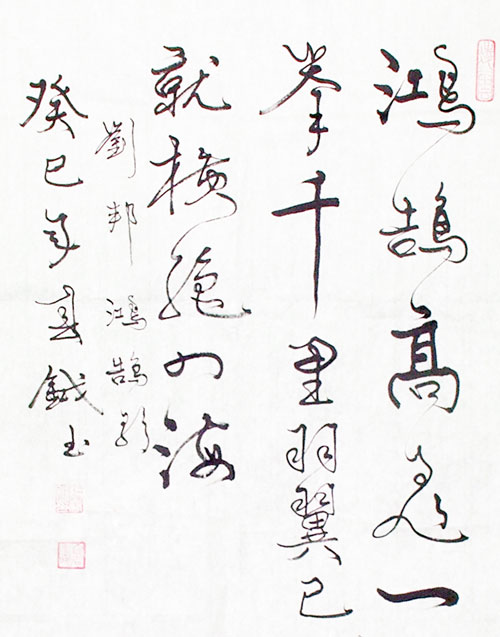 鴻鵠高飛一
举千里羽翼已
就横絕四海
劉邦鴻鵠歌
癸巳年春鉞